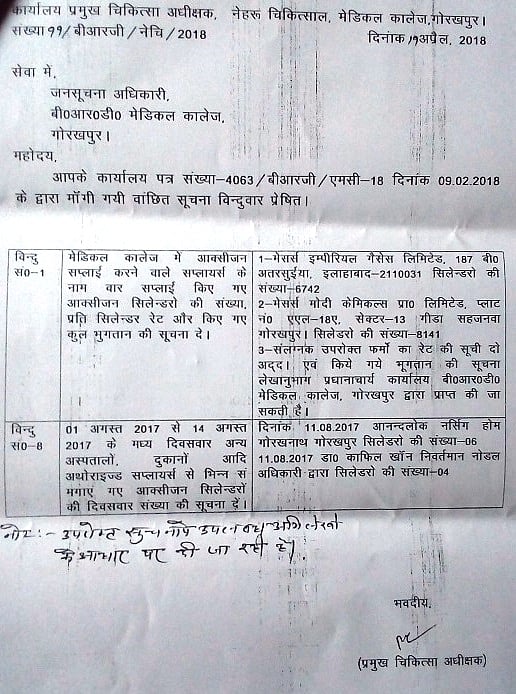 कार्यालय प्रमुख चिकित्सा अधीक्षक, नेहरू चिकित्साल, मेडिकल कालेज,गोरखपुर।
संख्या 99/बीआरजी/नेचि/2018 दिनांक 19 अप्रैल, 2018
सेवा में,
जनसूचना अधिकारी,
बी0आर0डी0 मेडिकल कालेज,
गोरखपुर।
महोदय,
आपके कार्यालय पत्र संख्या-4063/बीआरजी/एमसी-18 दिनांक 09.02.2018
के द्वारा माँगी गयी वांछित सूचना विन्दुवार प्रेषित।
विन्दु
सं0-1
मेडिकल कालेज में आक्सीजन
सप्लाई करने वाले सप्लायर्स के
नाम वार सप्लाई किए गए
आक्सीजन सिलेन्डरों की संख्या,
प्रति सिलेन्डर रेट और किए गए
कुल भुगतान की सूचना दे।
1-मेसर्स इम्पीरियल गैसेस लिमिटेड, 187 बी0
अतरसुईया, इलाहाबाद-2110031 सिलेन्डरो की
संख्या-6742
2-मेसर्स मोदी केमिकल्स प्रा0 लिमिटेड, प्लाट
नं0 एएल-18ए, सेक्टर-13 गीडा सहजनवा
गोरखपुर। सिलेडरों की संख्या-8141
3-संलग्नक उपरोक्त फर्मो का रेट की सूची दो
अदद। एवं किये गये भूगतान की सूचना
लेखानुभाग प्रधानाचार्य कार्यालय बी0आर0डी0
मेडिकल कालेज, गोरखपुर द्वारा प्राप्त की जा
सकती है।
विन्दु
सं0-8
01 अगस्त 2017 से 14 अगस्त
2017 के मध्य दिवसवार अन्य
अस्पतालों, दुकानों आदि
अथोराइज्ड सप्लायर्स से भिन्न सं
मगाएं गए आक्सीजन सिलेन्डरों
की दिवसवार संख्या की सूचना दें।
दिनांक 11.08.2017 आनन्दलोक नर्सिग होम
गोरखनाथ गोरखपुर सिलेडरो की संख्या-06
11.08.2017 डा0 काफिल खॉन निवर्तमान नोडल
अधिकारी द्वारा सिलेडरो की संख्या-04
नोट:- उपरोक्त सूचनायें उपलब्ध अभिलेखो
के आधार पर दी जा रही है।
भवदीय,
(प्रमुख चिकित्सा अधीक्षक)